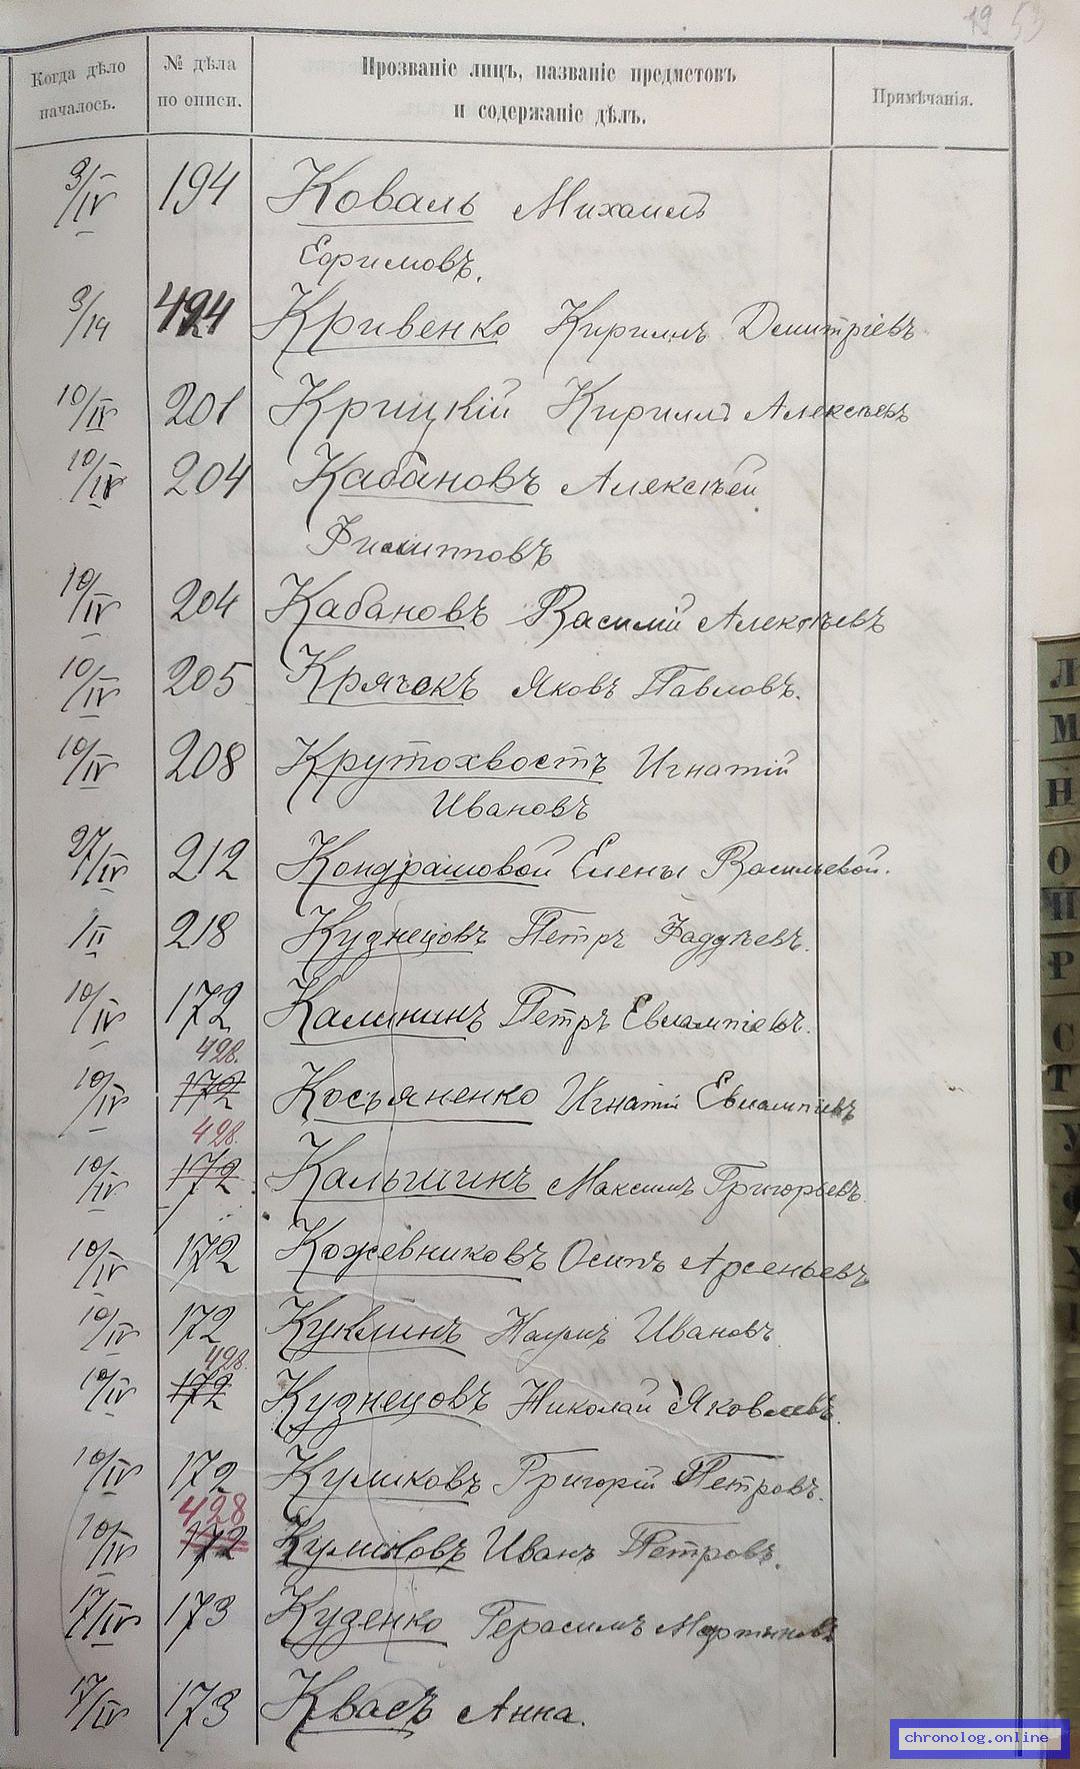 19 53
Когда дѣло началось.
№ дѣла по описи.
Прозваніе лицъ, названіе предметовъ и содержаніе дѣлъ.
Примѣчанія.
3/IV 194 Коваль Михаилъ
Ефимовъ.
3/IV Кривенко Кириллъ Дмитріевъ
10/IV 201 Крицкій Кириллъ Алексѣевъ
10/IV 204 Кабановъ Алексѣй
Филипповъ
10/IV 204 Кабановъ Василій Алексѣевъ
10/IV 205 Крячокъ Яковъ Павловъ.
10/IV 208 Крутохвостъ Игнатій
Ивановъ
27/IV 212 Кондрашовой Елены Васильевой.
1/II 218 Кузнецовъ Петръ Фаддѣевъ.
10/IV 172 Калининъ Петръ Евлампіевъ.
428.
10/IV 172 Косьяненко Игнатій Евлампіевъ
428.
10/IV 172 Калышинъ Максимъ Григорьевъ.
10/IV 172 Кожевниковъ Осипъ Арсеньевъ
10/IV 172 Куклинъ Наумъ Ивановъ.
428.
10/IV 172 Кузнецовъ Николай Яковлевъ.
10/IV 172 Куликовъ Григорій Петровъ.
428
10/IV 172 Куликовъ Иванъ Петровъ.
17/IV 173 Куценко Герасимъ Мартыновъ
17/IV 173 Квасъ Анна.
Л
М
Н
О
П
Р
С
Т
У
Ф
Х
chronolog.online